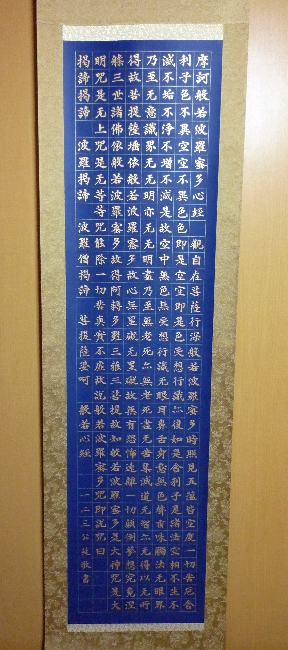 摩訶般若波羅蜜多心經 觀自在菩薩行深般若波羅蜜多時照見五蘊皆空度一切苦厄舍
利子色不異空空不異色色即是空空即是色受想行識亦復如是舍利子是諸法空相不生不
滅不垢不淨不增不減是故空中無色無受想行識无眼耳鼻舌身意無色聲香味觸法无眼界
乃至无意識界无无明亦无无明盡乃至無老死亦無老死盡无苦集滅道无智亦无得以无所
得故菩提薩埵依般若波羅蜜多故心無罣礙无罣礙故無有恐怖遠離一切顛倒夢想究竟涅
槃三世諸佛依般若波羅蜜多故得阿耨多羅三藐三菩提故知般若波羅蜜多是大神咒是大
明咒是无上咒是无等等咒能除一切苦真實不虛故說般若波羅蜜多咒即說咒曰
揭諦揭諦 波羅揭諦 波羅僧揭諦 菩提薩婆呵 般若心經 一二三 敬書